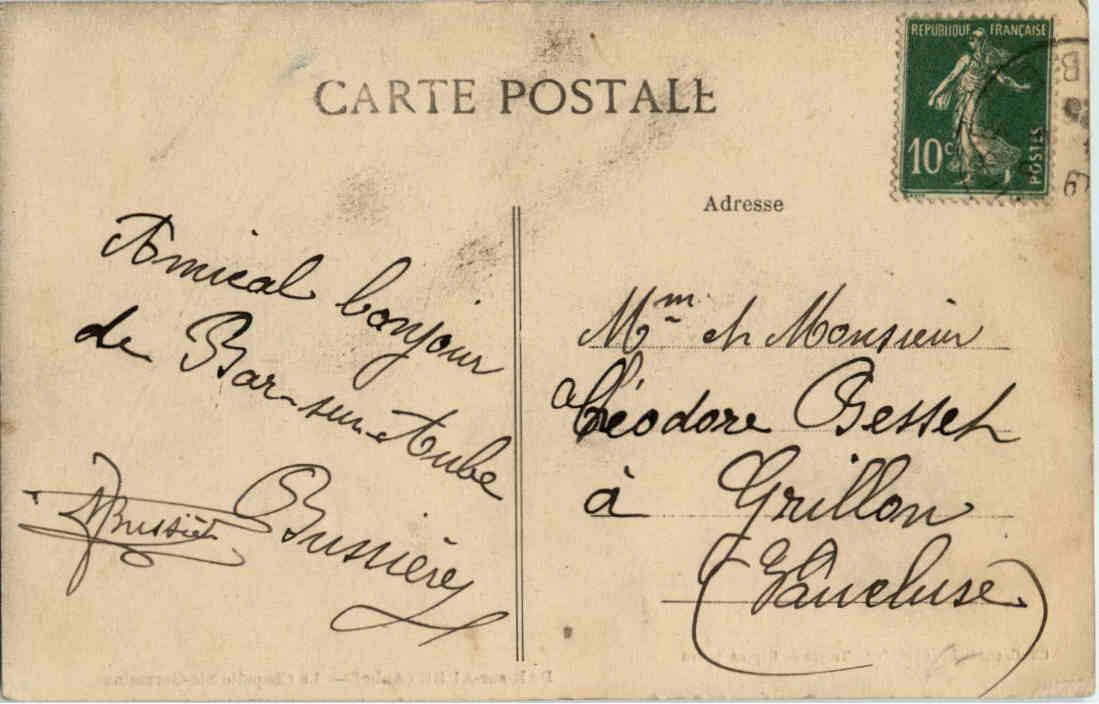 CARTE POSTALE
REPUBLIQUE FRANÇAISE
10c
POSTES
Adresse
Amical bonjour
de Bar-sur-Aube
Bussière
Bussière
Mm et Monsieur
Téodore Besset
à Grillon
(Vaucluse)